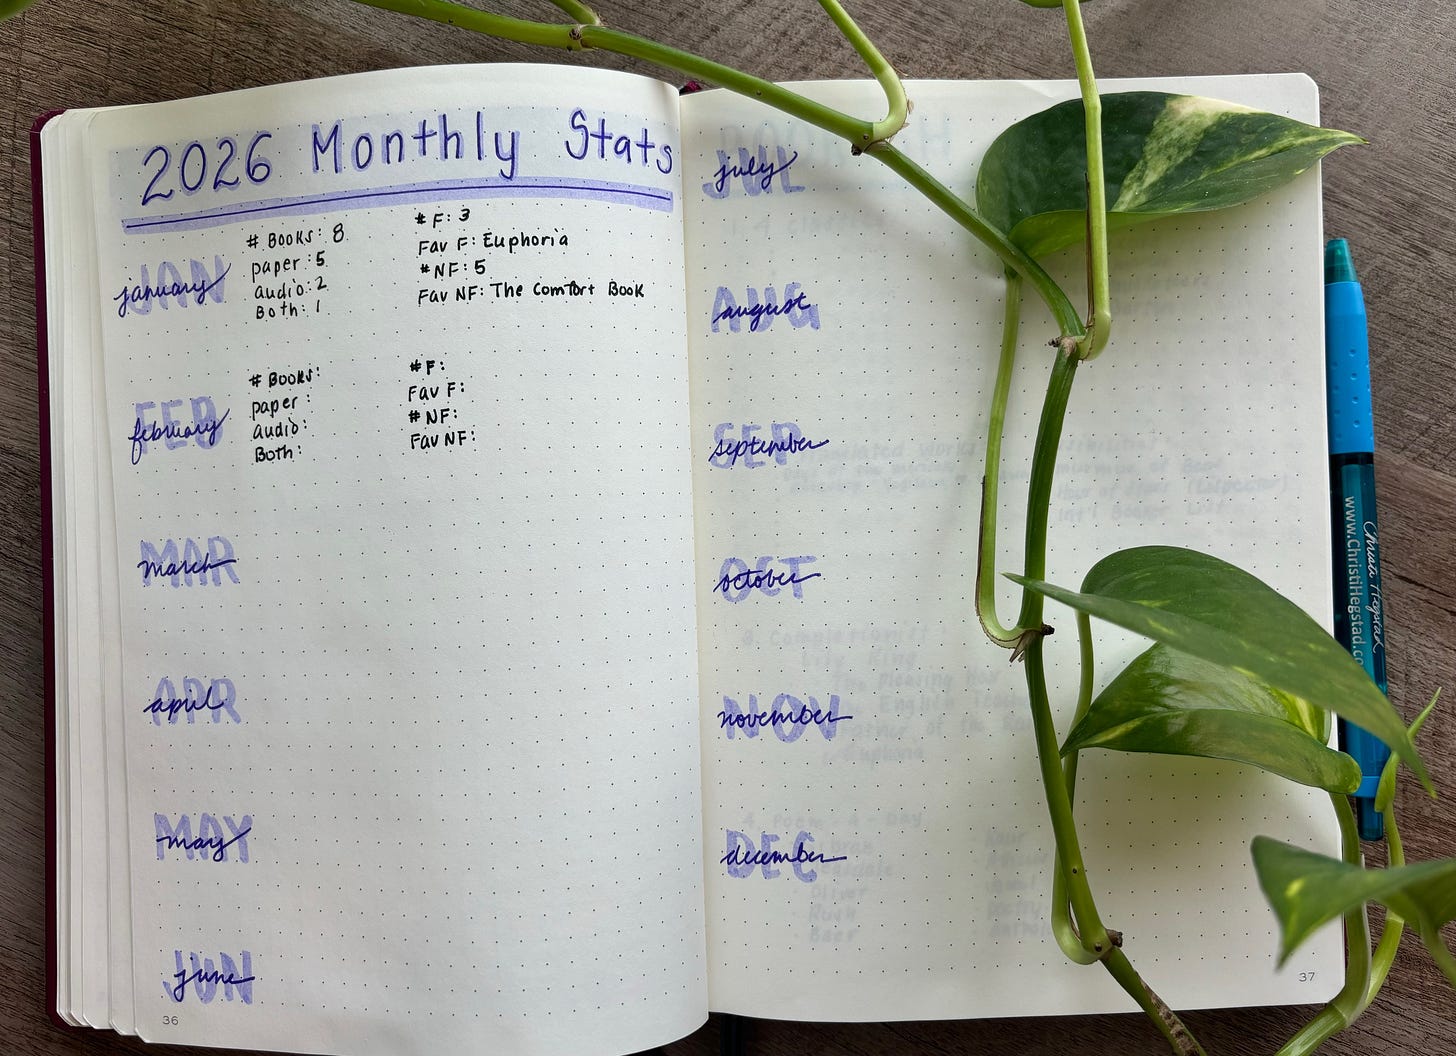 2026 Monthly Stats
JAN
january
# Books: 8
paper: 5
audio: 2
Both: 1
# F: 3
Fav F: Euphoria
# NF: 5
Fav NF: The Comfort Book
FEB
february
# Books:
paper:
audio:
Both:
# F:
Fav F:
# NF:
Fav NF:
MAR
march
APR
april
MAY
may
JUN
june
36
JUL
july
AUG
august
SEP
september
OCT
october
NOV
november
DEC
december
4. Poem-A-Day
Oliver
Rush
Baer
37
Christi Hegstad
www.ChristiHegstad.co